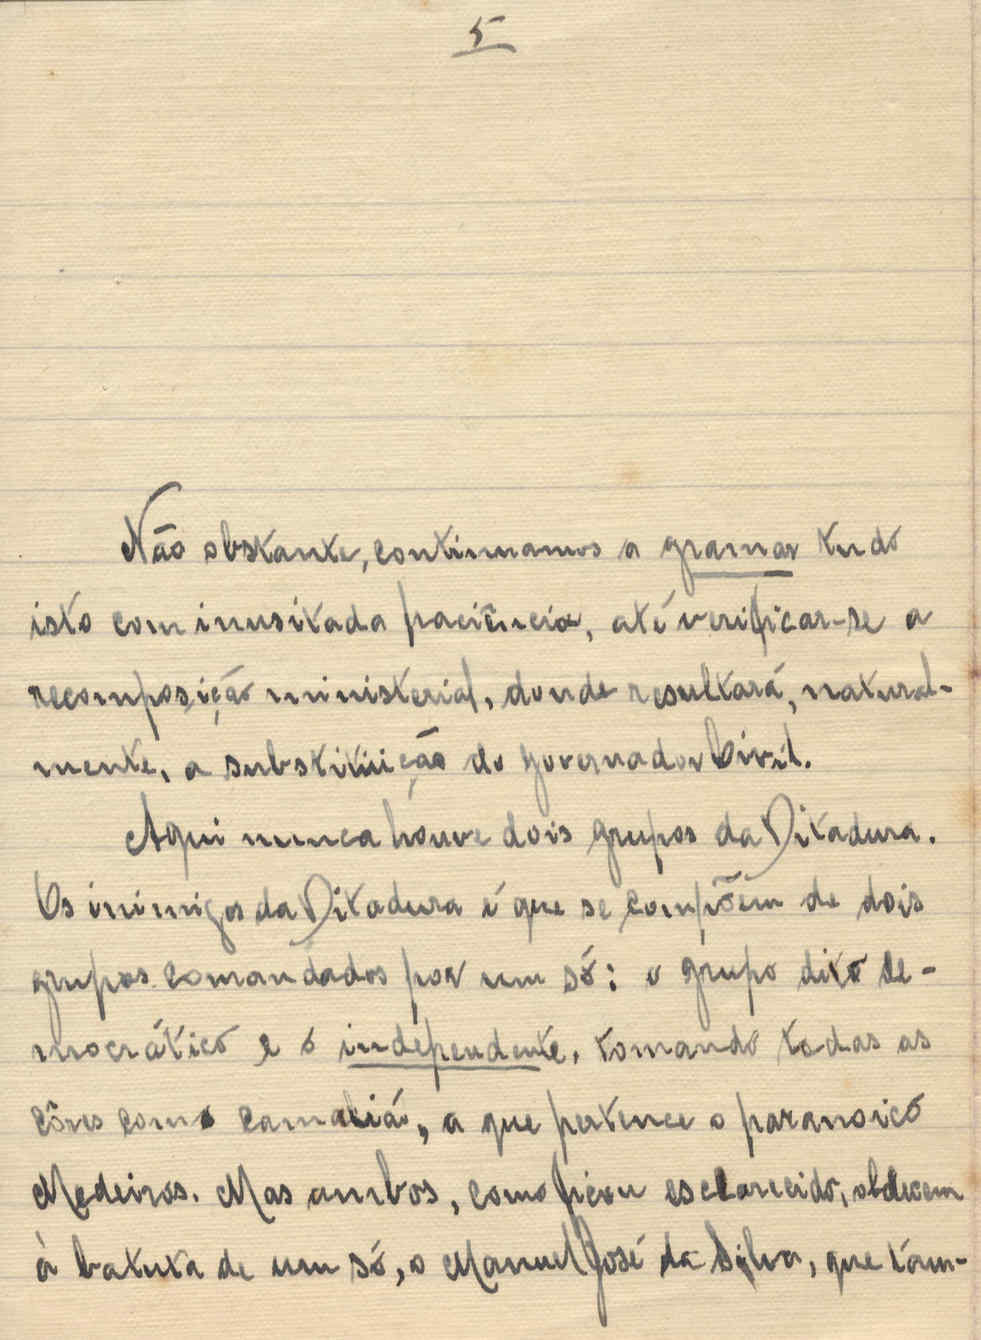 5
Não obstante, continuamos a gramar tudo
isto com inusitada paciência, até verificar-se a
recomposição ministerial, donde resultará, natural-
mente, a substitüição do Governador Civil.
Aqui nunca houve dois grupos da Ditadura.
Os inimigos da Ditadura é que se compõem de dois
grupos comandados por um só: o grupo dito de-
mocrático e o independente, tomando todas as
côres como camalião, a que pertence o paranoico
Medeiros. Mas ambos, como ficou esclarecido, obdecem
à batuta de um só, o Manuel José da Silva, que tam-